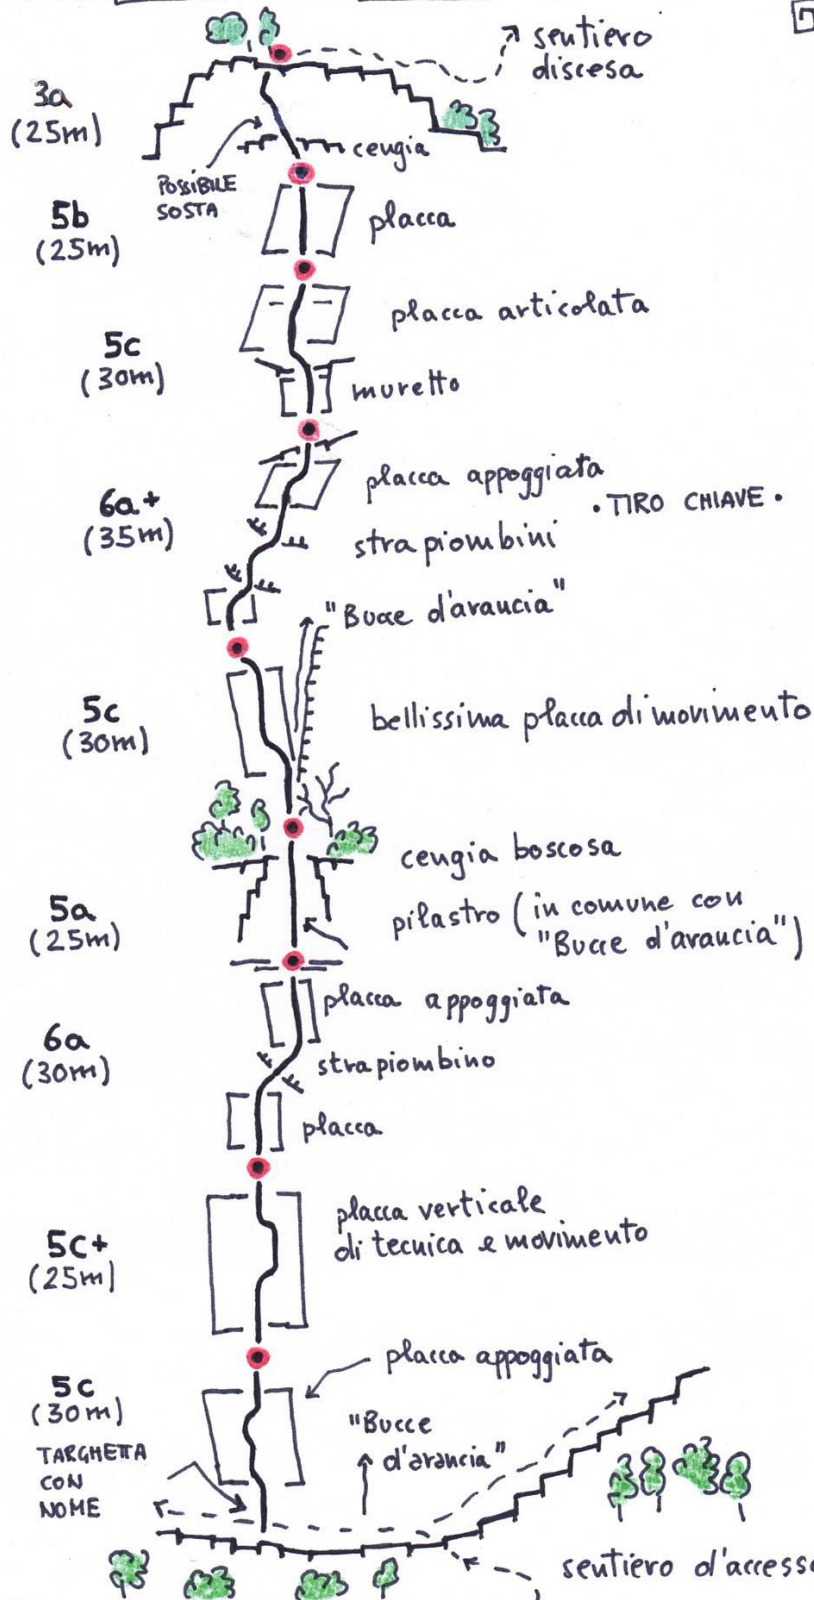 sentiero
discesa
3a
(25m)
cengia
POSSIBILE
SOSTA
5b
(25m)
placca
placca articolata
5c
(30m)
muretto
placca appoggiata
6a+
(35m)
• TIRO CHIAVE •
strapiombini
"Bucce d'arancia"
5c
(30m)
bellissima placca di movimento
cengia boscosa
5a
(25m)
pilastro (in comune con
"Bucce d'arancia")
placca appoggiata
6a
(30m)
strapiombino
placca
placca verticale
di tecnica e movimento
5c+
(25m)
placca appoggiata
5c
(30m)
"Bucce
d'arancia"
TARGHETTA
CON
NOME
sentiero d'accesso